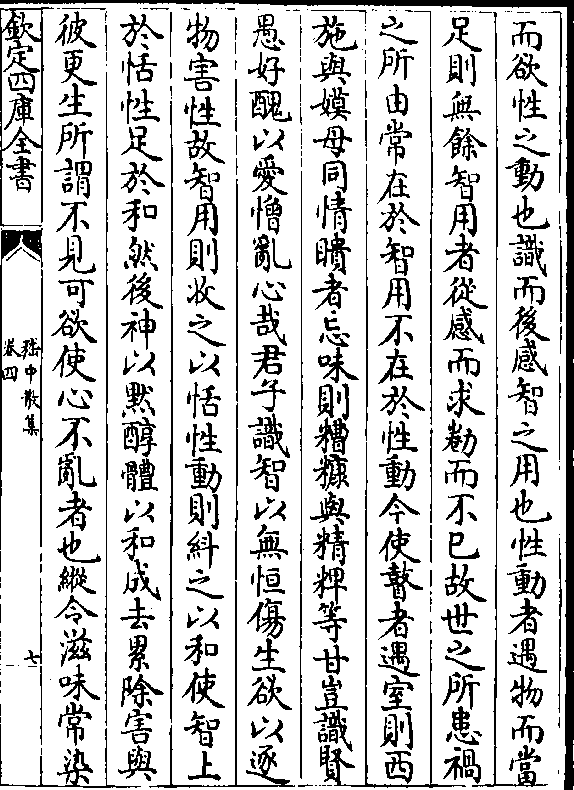 而欲性之動也識而後感智之用也性動者遇物而當
足則無餘智用者從感而求勌而不已故世之所患禍
之所由常在於智用不在於性動今使瞽者遇室則西
施與嫫母同情瞶者忘味則糟糠與精粺等甘豈識賢
愚好醜以愛憎亂心哉君子識智以無恒傷生欲以逐
物害性故智用則收之以恬性動則糾之以和使智上
於恬性足於和然後神以黙醇體以和成去累除害與
彼更生所謂不見可欲使心不亂者也縱令滋味常染
欽定四庫全書
嵇中散集
卷四
七